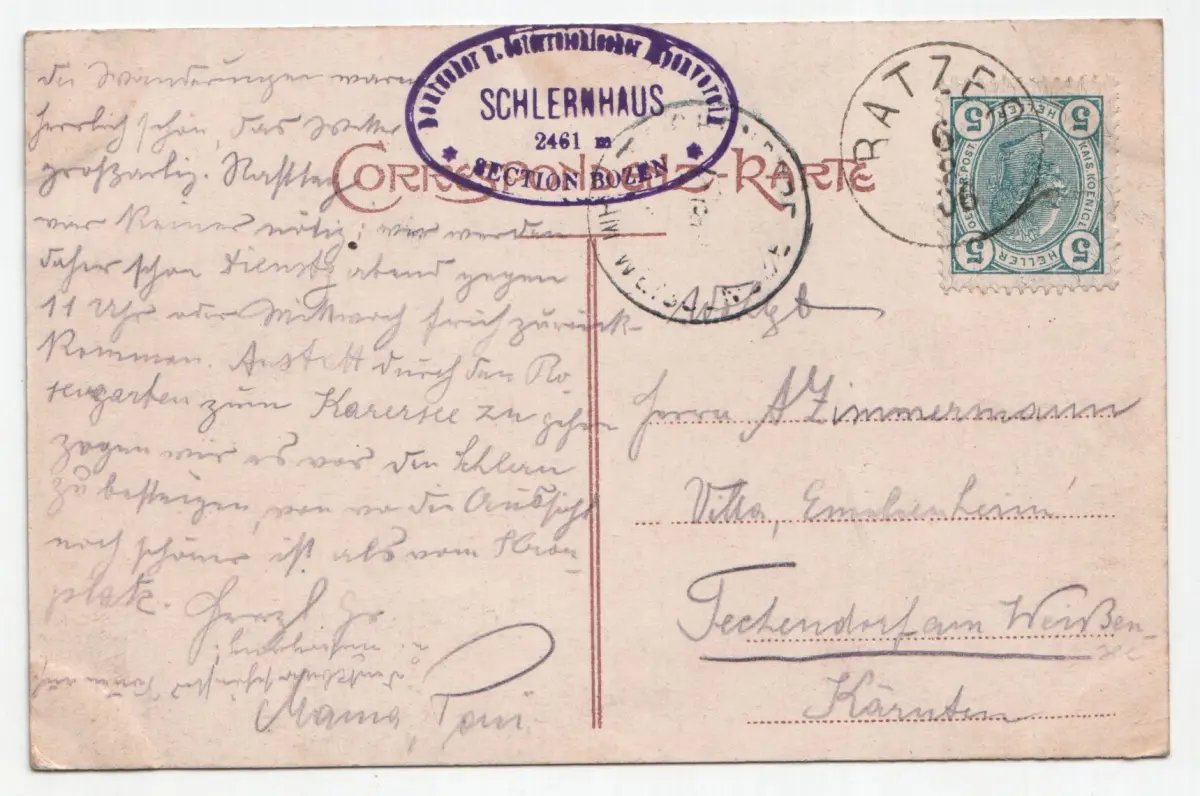 Deutscher u. österreichischer Alpenverein
SCHLERNHAUS
2461 m
SECTION BOZEN
CORRESPONDENZ-KARTE
RATZES
6
06
5 5
HELLER
KAIS. KOENIGL.
OESTERR. POST.
HELLER
5 5
die Wanderungen waren
herrlich schön, das Wetter
großartig. Rasttag
war keiner nötig; wir werden
daher schon Dienstg abend gegen
11 Uhr oder Mittwoch früh zurück-
kommen. Anstatt durch den Ro-
sengarten zum Karersee zu gehen
zogen wir es vor den Schlern
zu besteigen, von wo die Aussicht
noch schöner ist als vom Kron-
platz. Herzl Gr.
Mama, Toni
Herrn A Zimmermann
Villa, Emilienheim
Techendorf am Weißen-
see
Kärnten